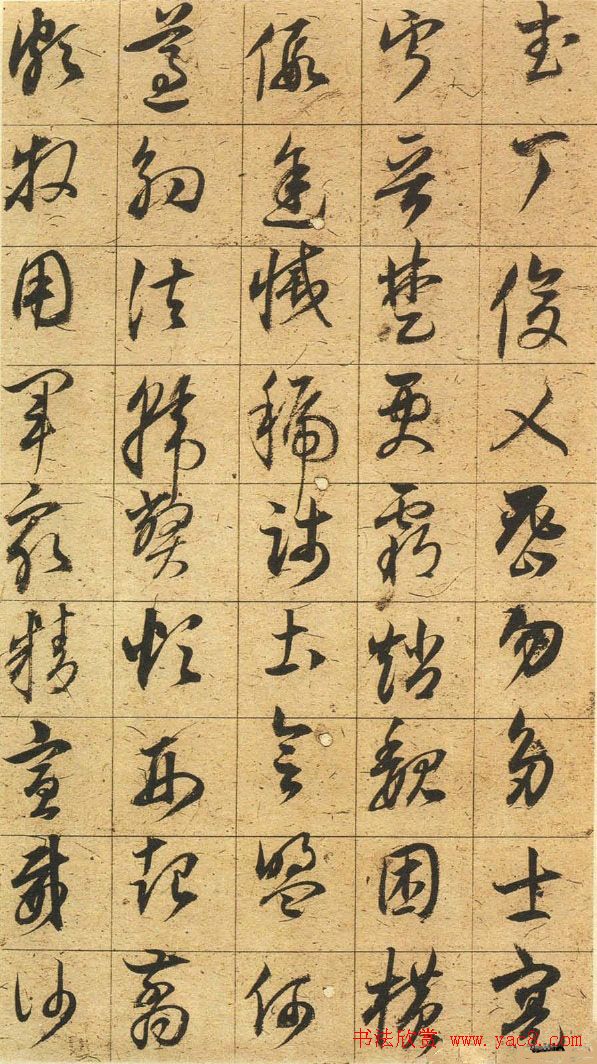 武丁俊乂密勿多士寔
寧晉楚更霸趙魏困橫
假途滅虢踐土會盟何
遵約法韓弊煩刑起翦
頗牧用軍最精宣威沙
书法欣赏 www.yac8.com